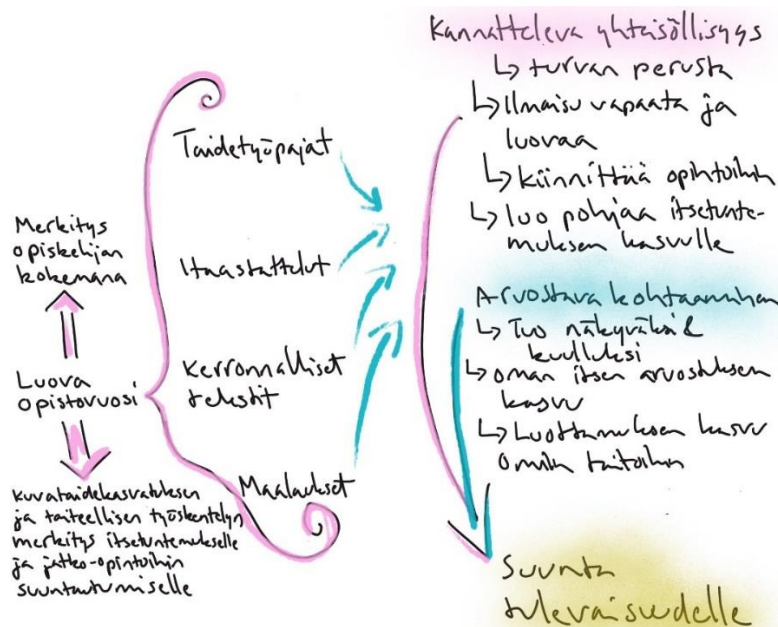 Merkitys
opiskelijan
kokemana
Luova
opistovuosi
kuvataidekasvatuksen
ja taiteellisen työskentelyn
merkitys itsetuntemukselle
ja jatko-opintoihin
suuntautumiselle
Taidetyöpajat
Haastattelut
Kerronnalliset
tekstit
Maalaukset
Kannatteleva yhteisöllisyys
↳ turvan perusta
↳ Ilmaisu vapaata ja
luovaa
↳ kiinnittää opintoihin
↳ luo pohjaa itsetunte-
muksen kasvulle
Arvostava kohtaaminen
↳ Tuo näkyväksi &
kuulluksi
↳ oman itsen arvostuksen
kasvu
↳ Luottamuksen kasvu
omiin taitoihin
Suunta
tulevaisuudelle